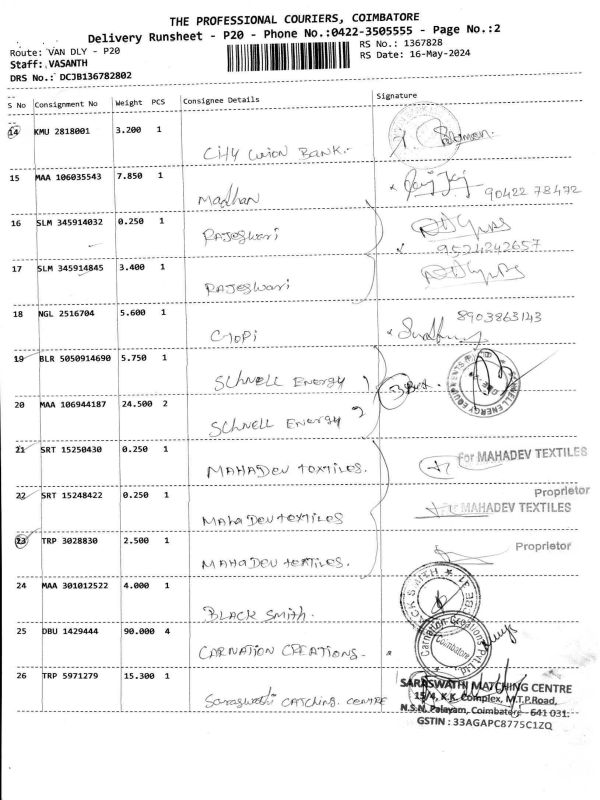 THE PROFESSIONAL COURIERS, COIMBATORE
Delivery Runsheet - P20 - Phone No.:0422-3505555 - Page No.:2
Route: VAN DLY - P20
RS No.: 1367828
Staff: VASANTH
RS Date: 16-May-2024
DRS No.: DCJB136782802
S No Consignment No Weight PCS Consignee Details Signature
14 KMU 2818001 3.200 1
City Union Bank.
15 MAA 106035543 7.850 1
Madhan 90422 78472
16 SLM 345914032 0.250 1
Rajeswari
9524242657
17 SLM 345914845 3.400 1
Rajeswari
18 NGL 2516704 5.600 1
Gopi 8903863143
19 BLR 5050914690 5.750 1
Schnell Energy
20 MAA 106944187 24.500 2
Schnell Energy
21 SRT 15250430 0.250 1
for MAHADEV TEXTILES
MAHADEV TEXTILES.
Proprietor
22 SRT 15248422 0.250 1
MAHADEV TEXTILES
MahaDev textiles
23 TRP 3028830 2.500 1
Proprietor
MAHADEV TEXTILES.
24 MAA 301012522 4.000 1
BLACK Smith.
25 DBU 1429444 90.000 4
Carnation Creations Pvt Ltd
Coimbatore
CARNATION CREATIONS.
26 TRP 5971279 15.300 1
SARASWATHI MATCHING CENTRE
15/4, K.K. Complex, M.T.P.Road,
Saraswathi CATCHING CENTRE
N.S.N. Palayam, Coimbatore - 641 031.
GSTIN : 33AGAPC8775C1ZQ